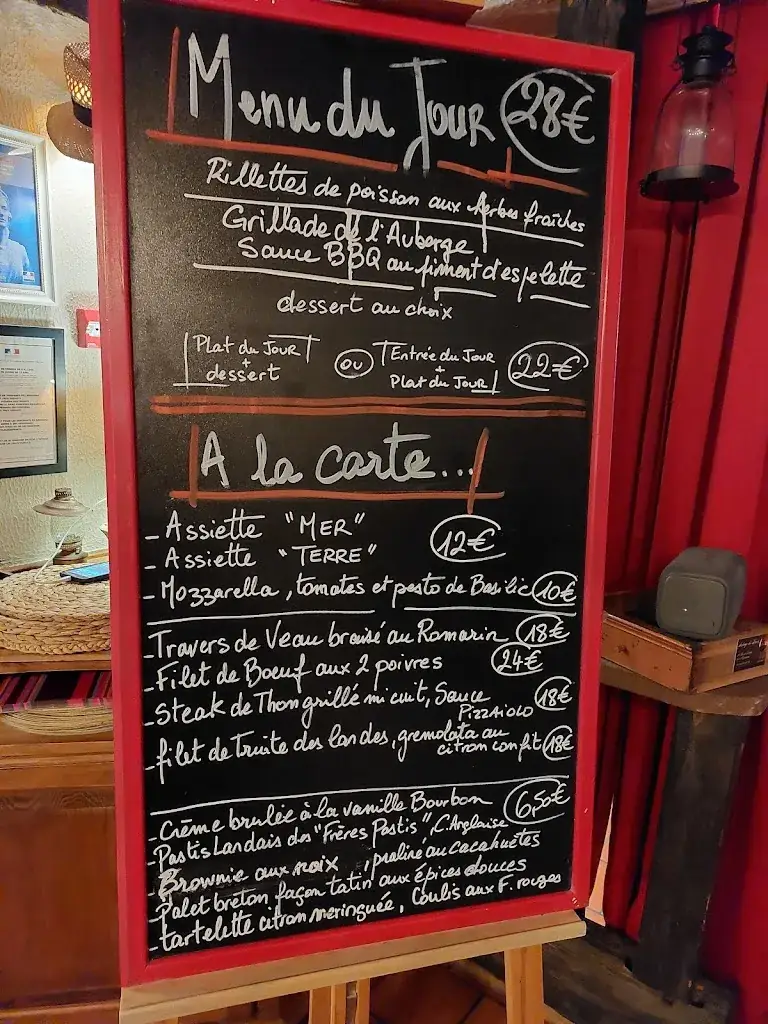 Menu du Jour 28€
Rillettes de poisson aux herbes fraîches
Grillade de l'Auberge
Sauce BBQ au piment d'espelette
dessert au choix
Plat du Jour + dessert ou Entrée du Jour + Plat du Jour 22€
A la carte...
- Assiette "MER"
- Assiette "TERRE" 12€
- Mozzarella, tomates et pesto de Basilic 10€
- Travers de Veau braisé au Romarin 18€
- Filet de Boeuf aux 2 poivres 24€
- Steak de Thon grillé mi cuit, Sauce
PIZZAIOLO 18€
- filet de Truite des landes, gremolata au
citron confit 18€
- Crème brulée à la vanille Bourbon 6,50€
- Pastis Landais des "Frères Pastis", C. Anglaise
- Brownie aux noix, praliné au cacahuètes
- Palet breton façon tatin aux épices douces
- tartelette citron meringuée, Coulis aux F. rouges